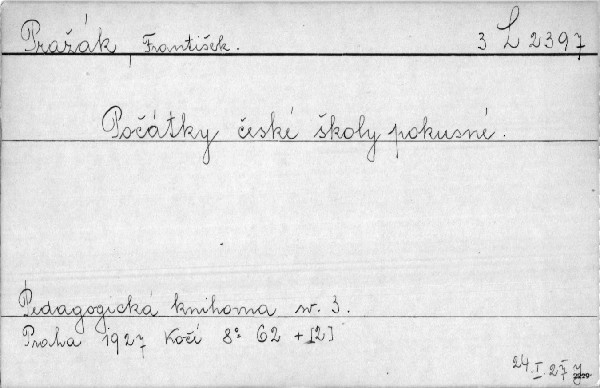 Pražák, František. 3 L 2397
Počátky české školy pokusné.
Pedagogická knihovna sv. 3.
Praha 1927 Kočí 8° 62 + [2]
24.I.27